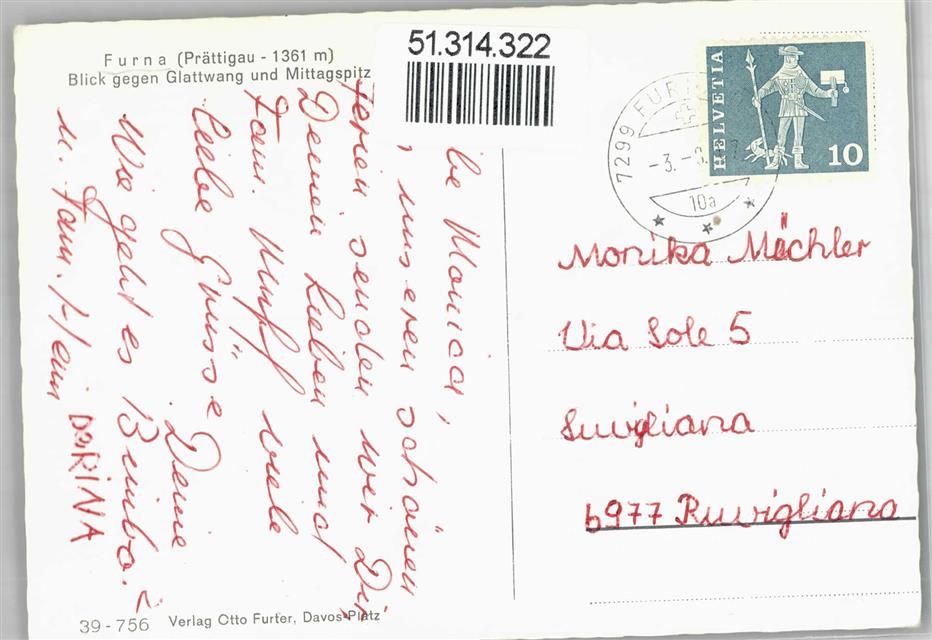 Furna (Prättigau - 1361 m)
Blick gegen Glattwang und Mittagspitz
51.314.322
HELVETIA
10
7299 FURN
-3.-
10a
be Monica,
unseren schönen
Ferien senden wir Dir
Deinen Lieben und
Fam. viele
liebe Grüsse Deine
Wie geht es Bimbo?
u. Fam.
DORINA
Monika Mächler
Via Sole 5
Suvigliana
6977 Ruvigliana
39-756 Verlag Otto Furter, Davos-Platz